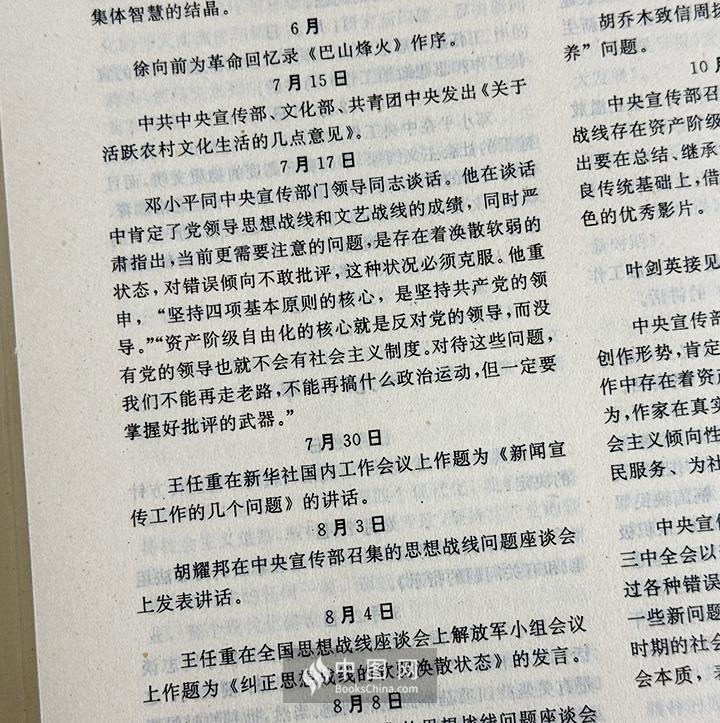 集体智慧的结晶。
6月
徐向前为革命回忆录《巴山烽火》作序。
7月15日
中共中央宣传部、文化部、共青团中央发出《关于
活跃农村文化生活的几点意见》。
7月17日
邓小平同中央宣传部门领导同志谈话。他在谈话
中肯定了党领导思想战线和文艺战线的成绩，同时严
肃指出：当前更需要注意的问题，是存在着涣散软弱的
状态，对错误倾向不敢批评，这种状况必须克服。他重
申，“坚持四项基本原则的核心，是坚持共产党的领
导。”“资产阶级自由化的核心就是反对党的领导，而没
有党的领导也就不会有社会主义制度。对待这些问题，
我们不能再走老路，不能再搞什么政治运动，但一定要
掌握好批评的武器。”
7月30日
王任重在新华社国内工作会议上作题为《新闻宣
传工作的几个问题》的讲话。
8月3日
胡耀邦在中央宣传部召集的思想战线问题座谈会
上发表讲话。
8月4日
王任重在全国思想战线座谈会上解放军小组会议
上作题为《纠正思想战线的软弱涣散状态》的发言。
8月8日
的思想战线问题座谈会
胡乔木致信周扬
养”问题。
10月
中央宣传部召
战线存在资产阶级
出要在总结、继承
良传统基础上，借
色的优秀影片。
叶剑英接见
中央宣传
创作形势，肯定
作中存在着资产
为，作家在真实
会主义倾向性
民服务、为社
中央宣传
三中全会以
过各种错误
一些新问题
时期的社会
会本质，表
中图网
BooksChina.com